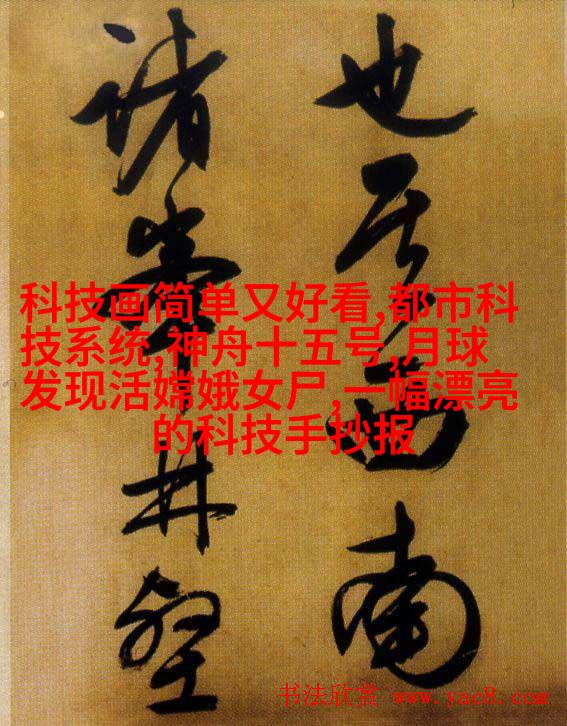 也其西南
諸峯林壑
科技画简单又好看,都市科
技系统,神舟十五号,月球
发现活嫦娥女尸,一幅漂亮
的科技手抄报
书法欣赏 www.yac8.com